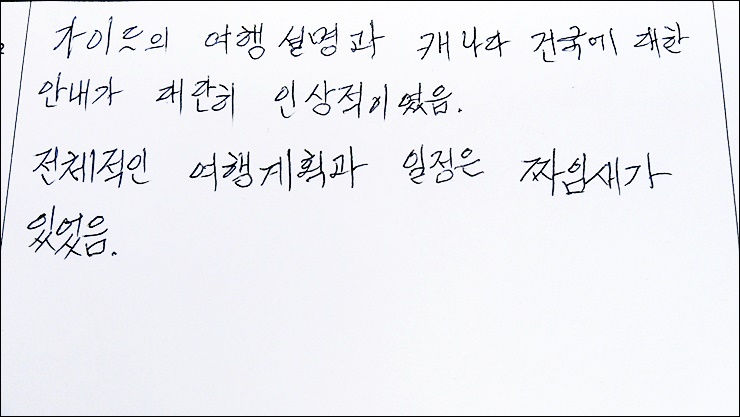 가이드의 여행 설명과 캐나다 건국에 대한
안내가 대단히 인상적이였음.
전체적인 여행계획과 일정은 짜임새가
있었음.